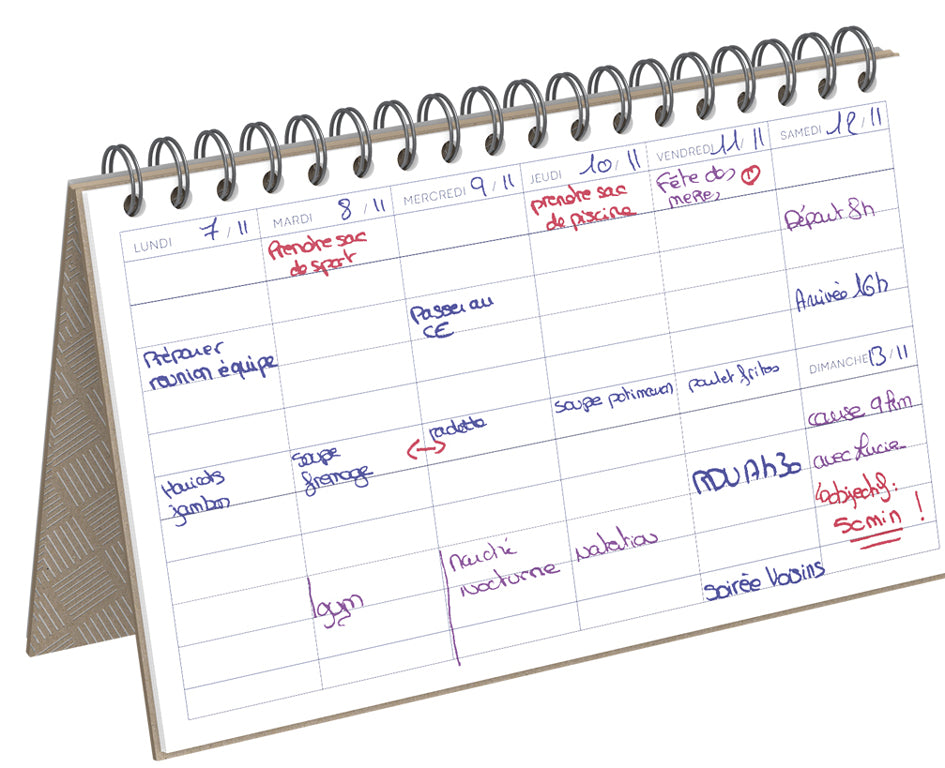 LUNDI 7/11
MARDI 8/11
MERCREDI 9/11
JEUDI 10/11
VENDREDI 11/11
SAMEDI 12/11
Prendre sac
de sport
prendre sac
de piscine
Fête des
meres
Départ 8h
Préparer
reunion équipe
Passer au
CE
Arrivée 16h
DIMANCHE 13/11
Haricots
jambon
soupe
fromage
raclette
soupe potimaron
poulet frites
course 9 km
avec Lucie
objectif:
50 min !
gym
Marché
nocturne
natation
soirée Voisins